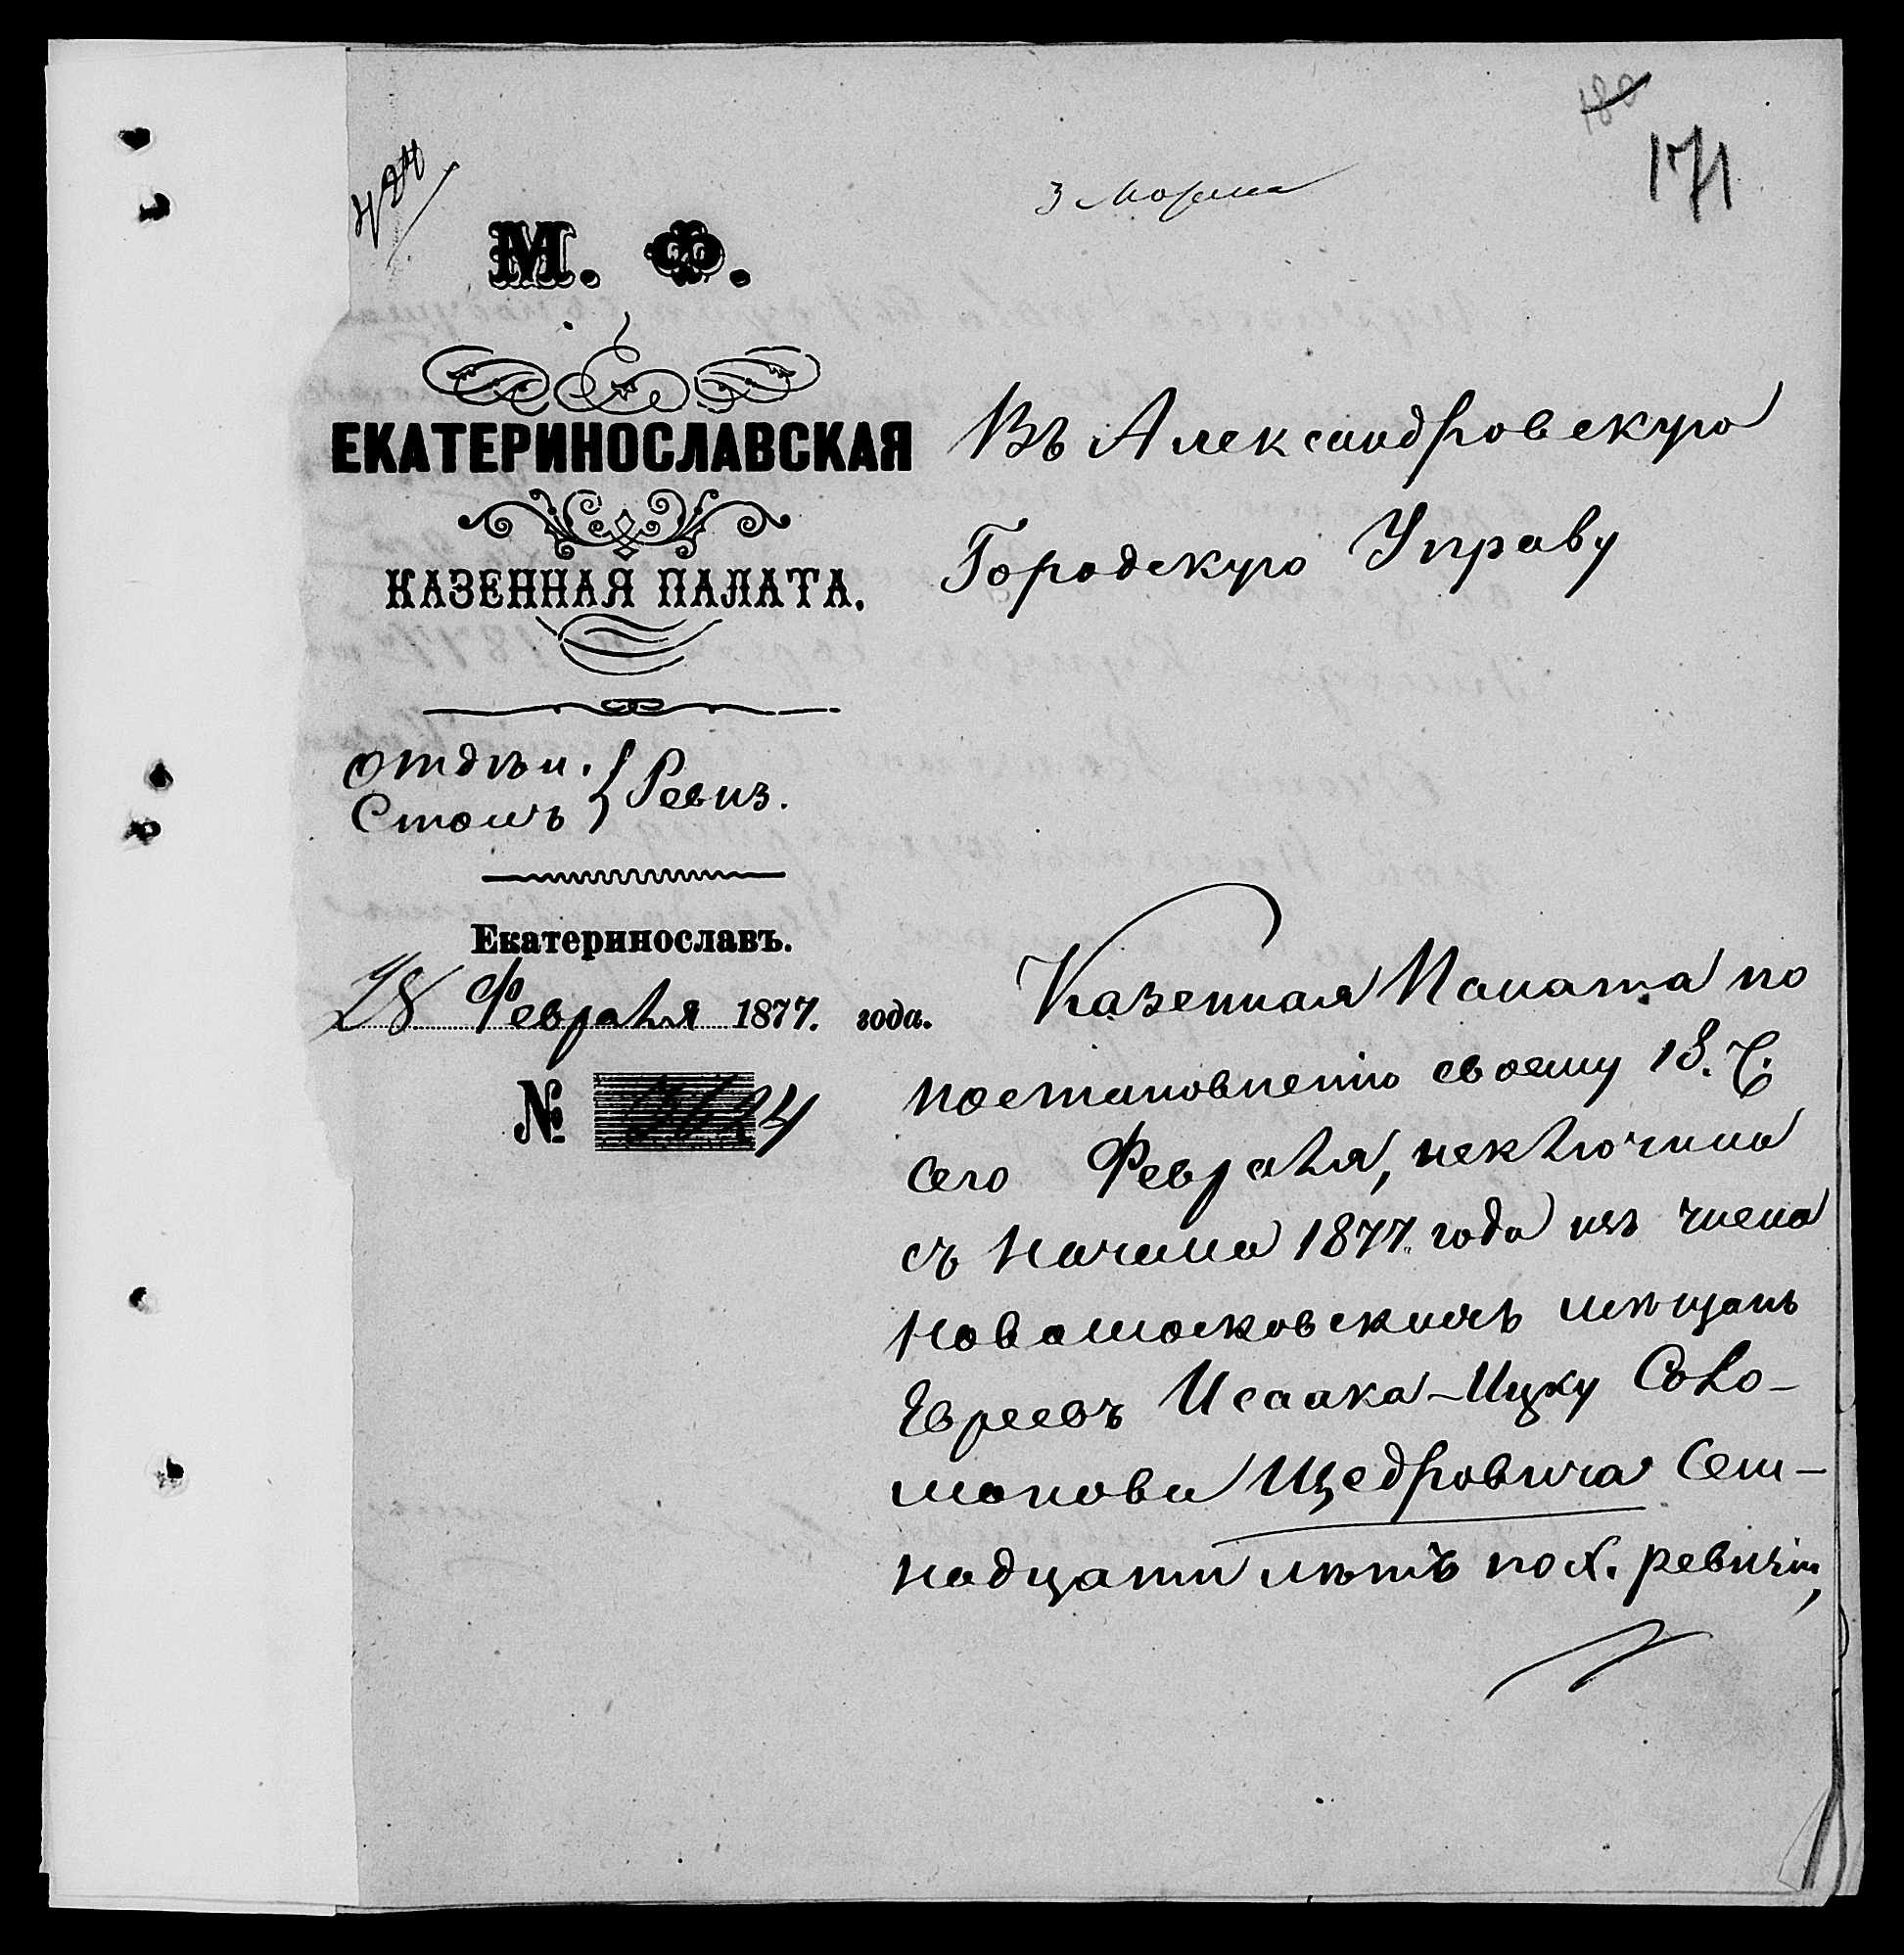 180
171
424
3 Марта
М. Ф.
ЕКАТЕРИНОСЛАВСКАЯ
КАЗЕННАЯ ПАЛАТА.
Отдѣл. } Ревиз.
Столъ
Екатеринославъ.
28 Февраля 1877. года.
№ 3424
Въ Александровскую
Городскую Управу
Казенная Палата по
постановленію своему 18. Ч.
сего Февраля, исключила
съ начала 1877. года изъ числа
Новомосковскихъ мѣщанъ
Евреевъ Исаака-Ицку Соло-
монова Щедровича сем-
надцати лѣтъ по X. ревизіи,